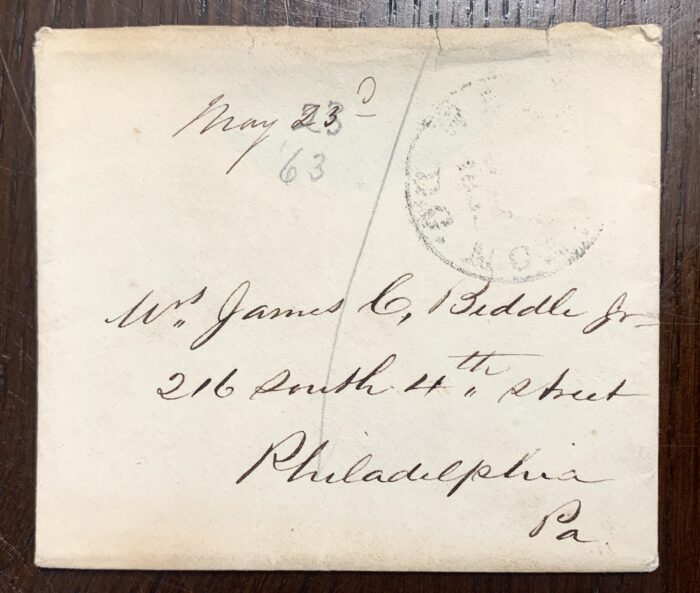 May 23d
23
63
D.C.
Mrs James C, Biddle Jr
216 South 4th Street
Philadelphia
Pa.